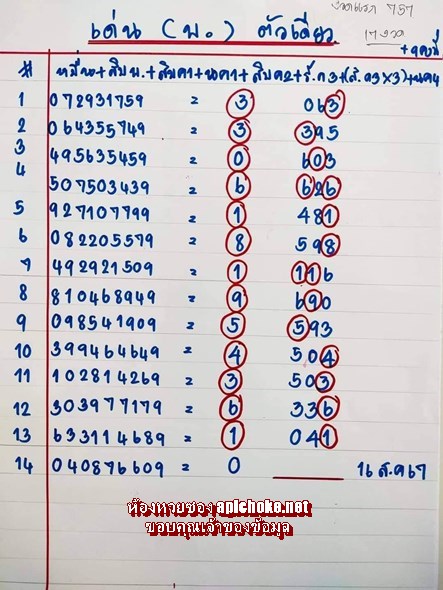 งวดแรก 757
เด่น (บ.) ตัวเดียว
17 งวด
# หมื่น+สิบ
1 072931759 = 3 063
2 064355749 = 3 395
3 495635459 = 0 603
4 507503439 = 6 626
5 927107799 = 1 481
6 082205579 = 8 598
7 492921509 = 1 116
8 810468949 = 9 690
9 098541909 = 5 593
10 399464649 = 4 504
11 102814269 = 3 503
12 303977179 = 6 336
13 633114689 = 1 041
14 040876609 = 0 16 ส.ค 67
ห้องหวยซอง apichoke.net
ขอบคุณเจ้าของข้อมูล